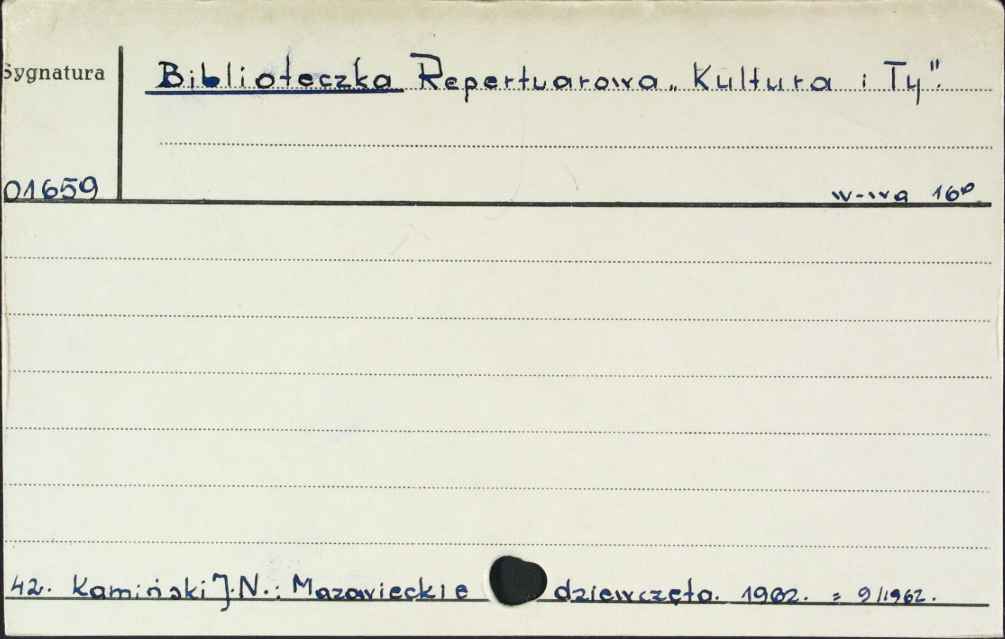 Sygnatura
Biblioteczka Repertuarowa „Kultura i Ty".
01659
W-wa 16º
42. Kamiński J.N.: Mazowieckie dziewczęta. 1962. = 9/1962.